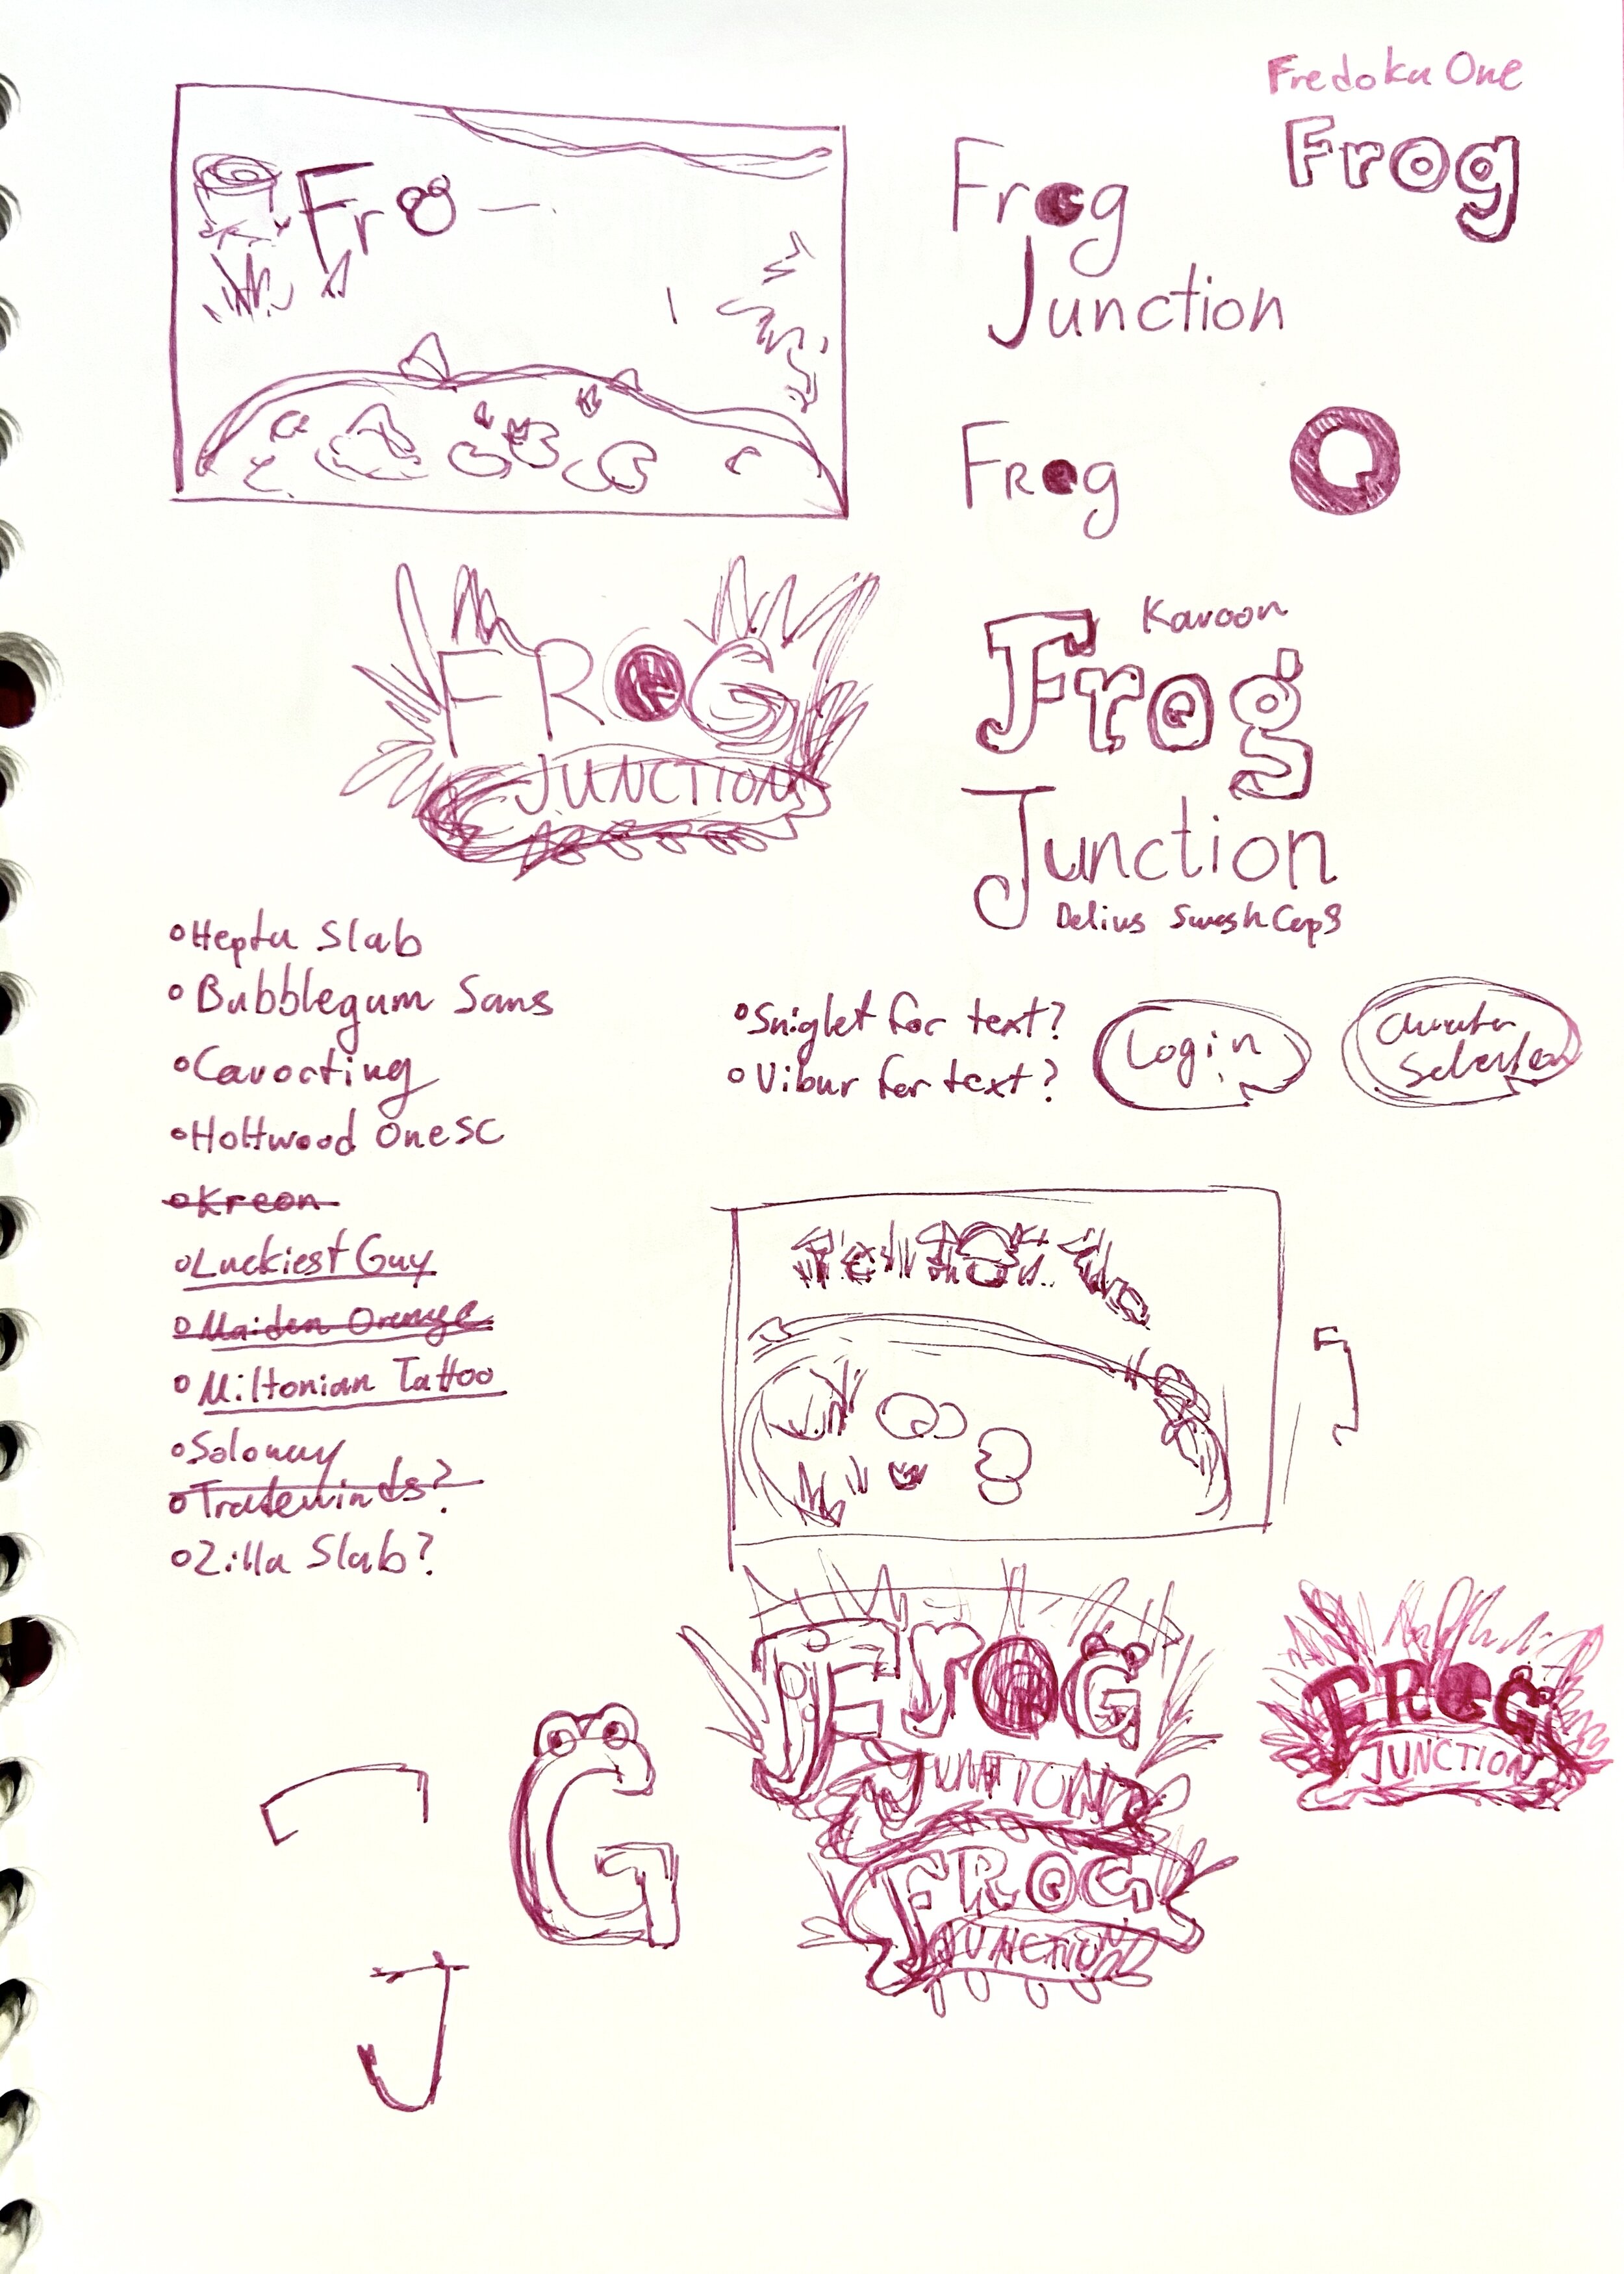 Fredoka One
Frog
Fro
Frog
Junction
Frog
FROG
JUNCTION
Karoon
Frog
Junction
Delius Swash Caps
Hepta Slab
Bubblegum Sans
Cavorting
Holtwood One SC
Kreon
Luckiest Guy
Maiden Orange
Miltonian Tattoo
Saloway
Tradewinds?
Zilla Slab?
Sniglet for text?
Vibur for text?
Login
FroG
JUNCTION
FROG
JUNCTION
FROG
JUNCTION
G
J